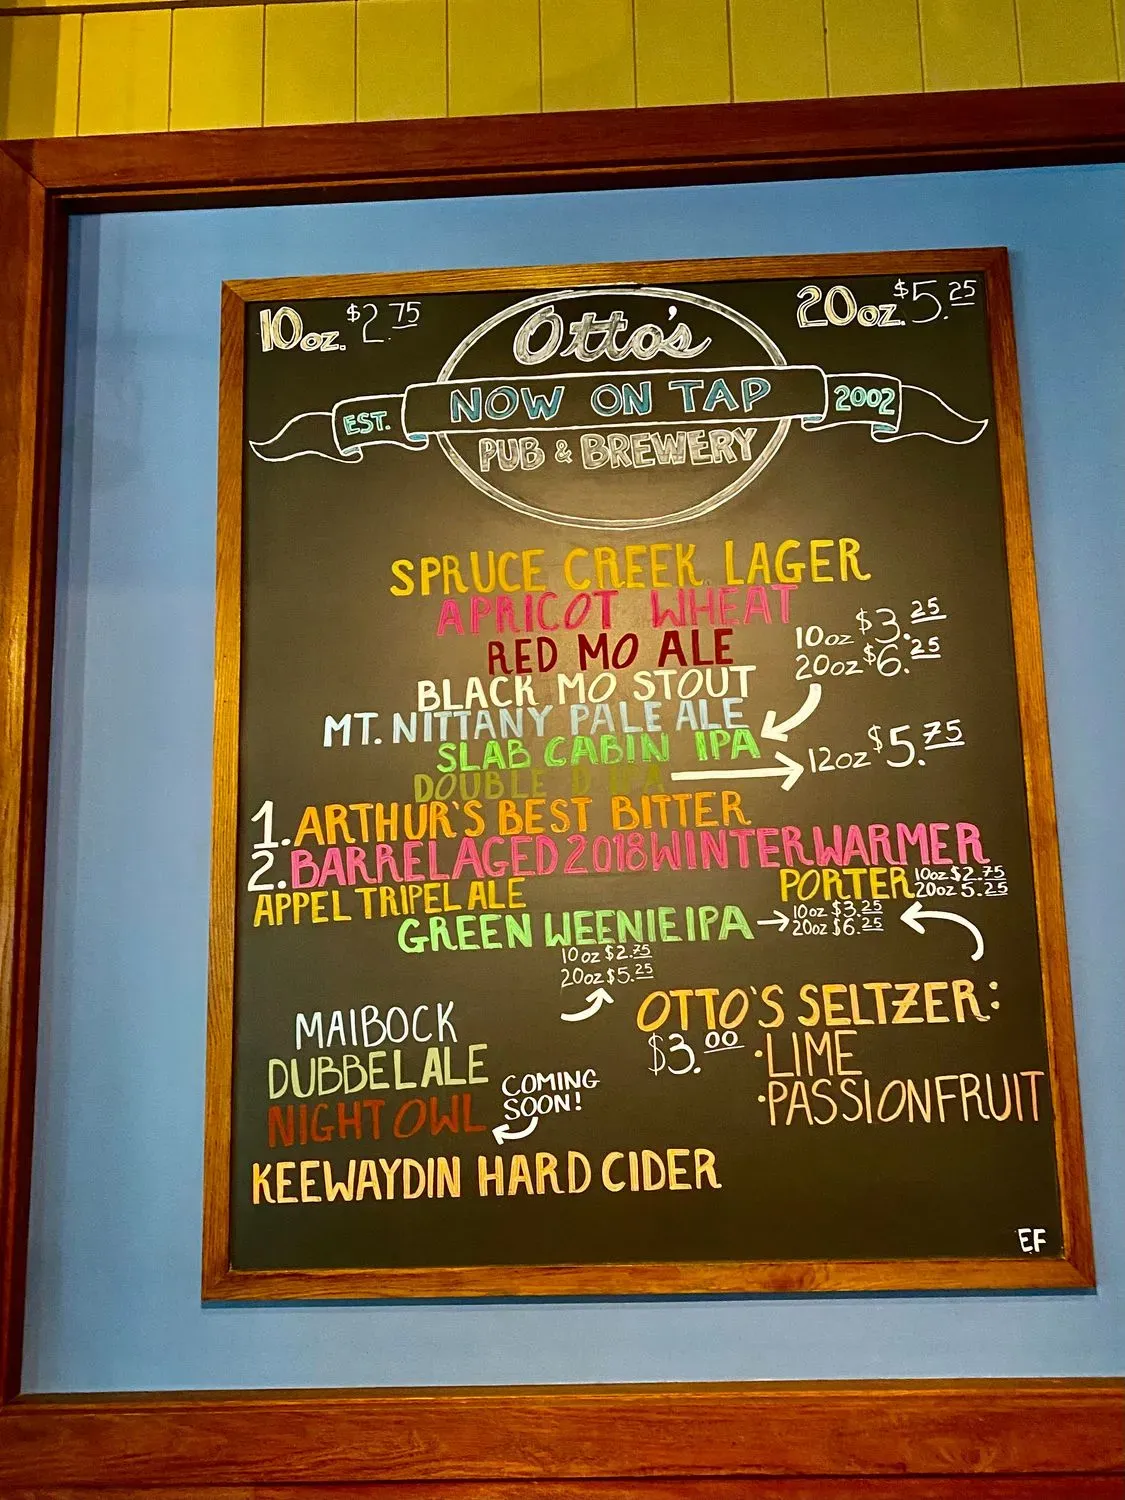 10oz. $2.75
20oz. $5.25
Otto's
EST. NOW ON TAP 2002
PUB & BREWERY
SPRUCE CREEK LAGER
APRICOT WHEAT
RED MO ALE
10oz $3.25
20oz $6.25
BLACK MO STOUT
MT. NITTANY PALE ALE
SLAB CABIN IPA
DOUBLE D IPA
12oz $5.75
1. ARTHUR'S BEST BITTER
2. BARREL AGED 2018 WINTER WARMER
APPEL TRIPEL ALE
PORTER 10oz $2.75
20oz 5.25
GREEN WEENIE IPA
10oz $3.25
20oz $6.25
10oz $2.75
20oz $5.25
OTTO'S SELTZER:
$3.00
•LIME
•PASSIONFRUIT
MAIBOCK
DUBBEL ALE
NIGHT OWL
COMING
SOON!
KEEWAYDIN HARD CIDER
EF